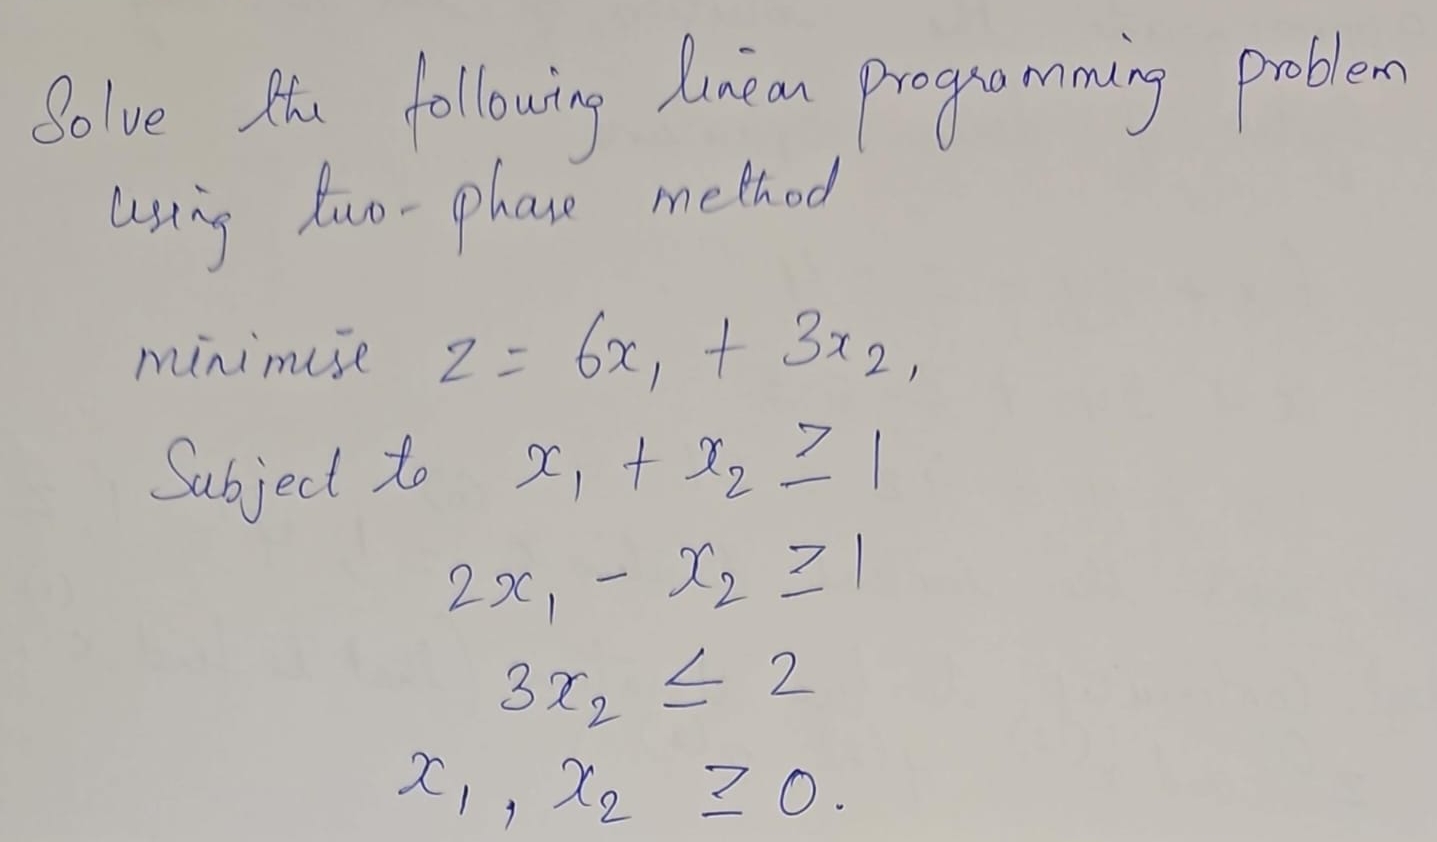 Solve the following linear programming problem
using two-phase method
minimise z = 6x₁ + 3x₂,
Subject to x₁ + x₂ ≥ 1
2x₁ - x₂ ≥ 1
3x₂ ≤ 2
x₁, x₂ ≥ 0.